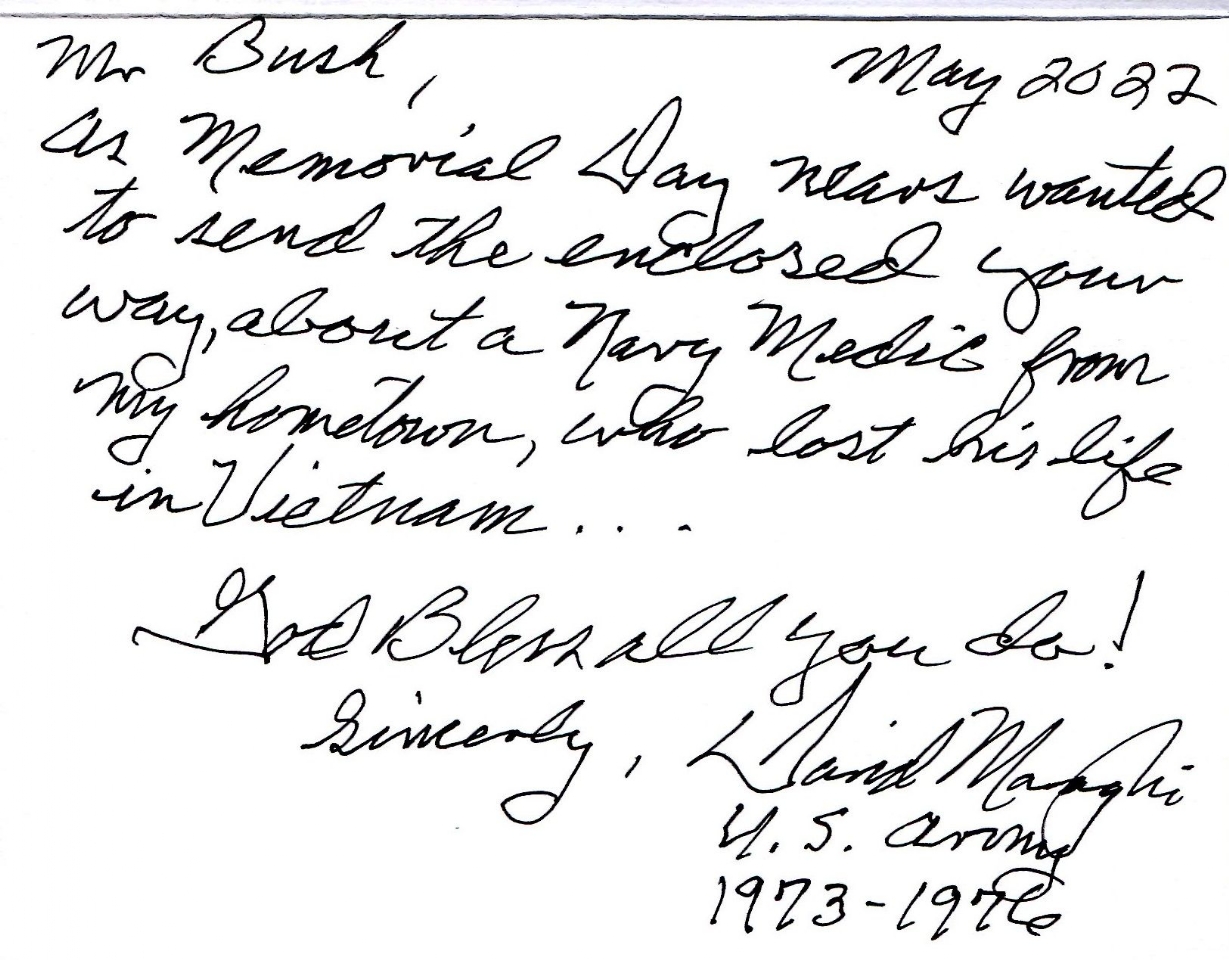 Mr Bush, May 2022
As Memorial Day nears wanted
to send the enclosed your
way, about a Navy Medic from
my hometown, who lost his life
in Vietnam . . .
God Bless all you do!
Sincerly, David
U. S. Army
1973-1976